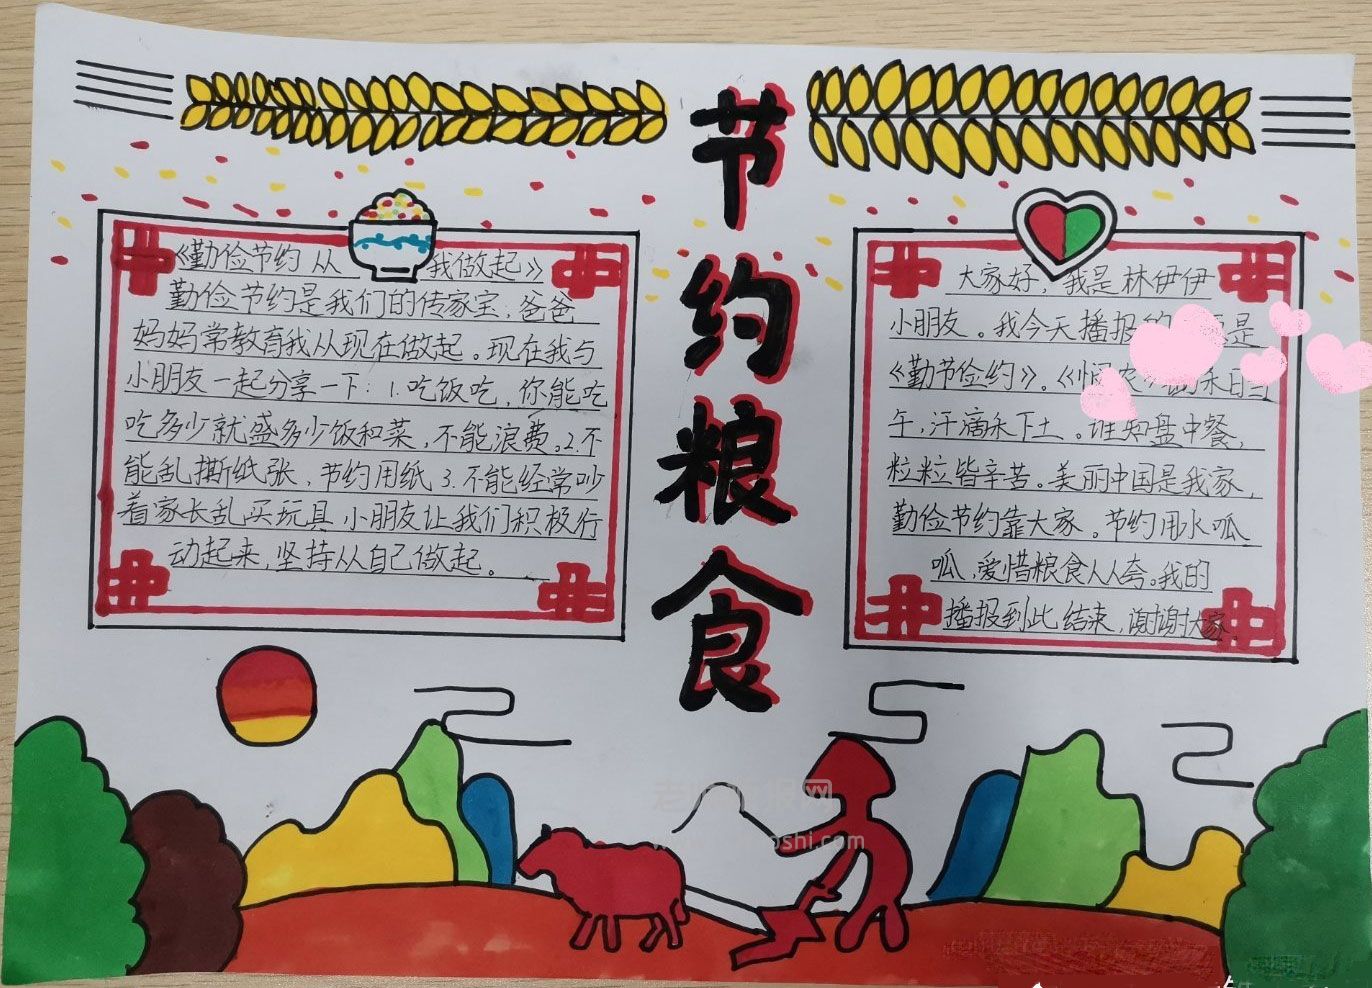 节约粮食
《勤俭节约 从 我做起》
勤俭节约是我们的传家宝，爸爸
妈妈常教育我从现在做起。现在我与
小朋友一起分享一下：1.吃饭吃，你能吃
吃多少就盛多少饭和菜，不能浪费。2.不
能乱撕纸张，节约用纸 3.不能经常吵
着家长乱买玩具 小朋友让我们积极行
动起来，坚持从自己做起。
大家好，我是林伊伊
小朋友。我今天播报的 是
《勤节俭约》。《悯农》 禾日当
午，汗滴禾下土。谁知盘中餐，
粒粒皆辛苦。美丽中国是我家，
勤俭节约靠大家。节约用水呱
呱，爱惜粮食人人夸。我的
播报到此结束，谢谢大家